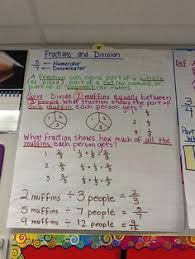 Fractions and Division
3 ← Numerator
4 ← Denominator
A fraction can name part of a whole
(ex pizza), part of a set (ex cookies), or
part of a segment (ex ruler).
Solve: Divide 2 muffins equally between
3 people. What fraction shows the part of
one muffin each person gets?
What fraction shows how much of all the
muffins each person gets?
2 muffins ÷ 3 people = 2/3
5 muffins ÷ 7 people = 5/7
9 muffins ÷ 12 people = 9/12